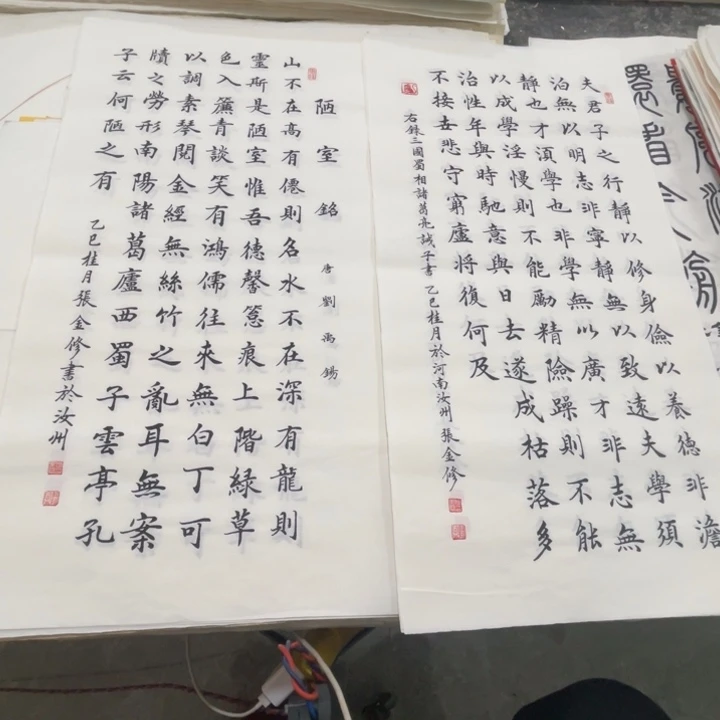 夫君子之行靜以修身儉以養德非澹
泊無以明志非寧靜無以致遠夫學須
靜也才須學也非學無以廣才非志無
以成學淫慢則不能勵精險躁則不能
治性年與時馳意與日去遂成枯落多
不接世悲守窮廬將復何及
右錄三國蜀相諸葛亮誡子書 乙巳桂月於河南汝州張金修
陋室銘 唐劉禹錫
山不在高有僊則名水不在深有龍則
靈斯是陋室惟吾德馨痕上階緑草
色入簾青談笑有鴻儒往來無白丁可
以調素琴閱金經無絲竹之亂耳無案
牘之勞形南陽諸葛廬西蜀子雲亭孔
子云何陋之有
乙巳桂月張金修書於汝州